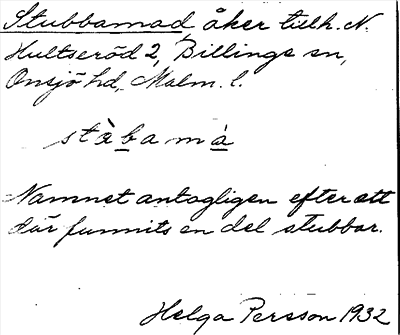 Stubbamad, åker tillh. N.
Hultseröd 2, Billinge sn,
Onsjö hd, Malm. l.
stàbamà
Namnet antagligen efter att
där funnits en del stubbar.
Helga Persson 1932